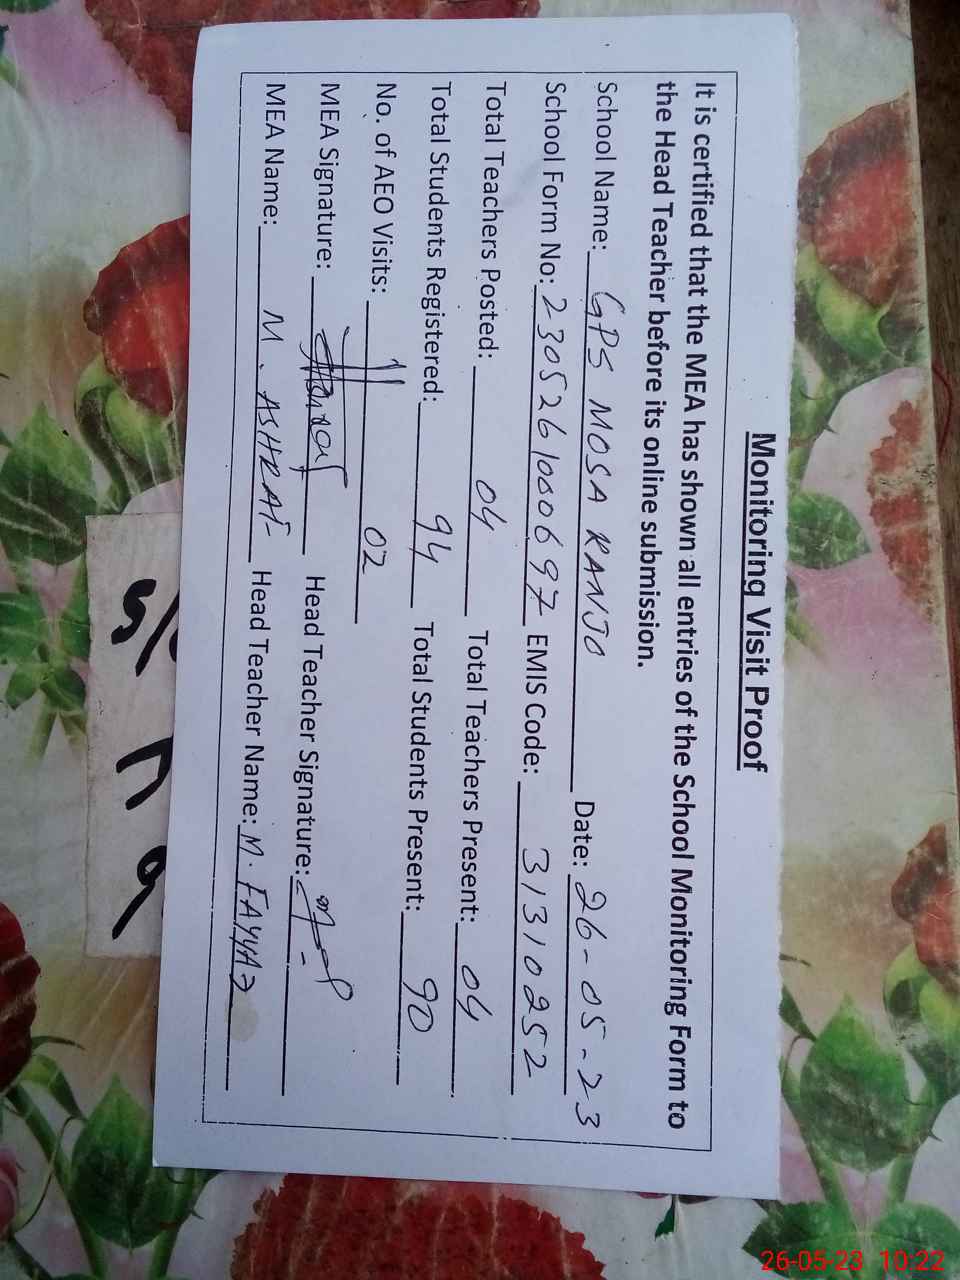 Monitoring Visit Proof
It is certified that the MEA has shown all entries of the School Monitoring Form to
the Head Teacher before its online submission.
School Name: GPS MOSA RANJO Date: 26-05-23
School Form No: 2305261000697 EMIS Code: 31310252
Total Teachers Posted: 04 Total Teachers Present: 04
Total Students Registered: 94 Total Students Present: 90
No. of AEO Visits: 02
MEA Signature: Head Teacher Signature:
MEA Name: M. ASHRAF Head Teacher Name: M. FAYYAZ
26-05-23 10:22